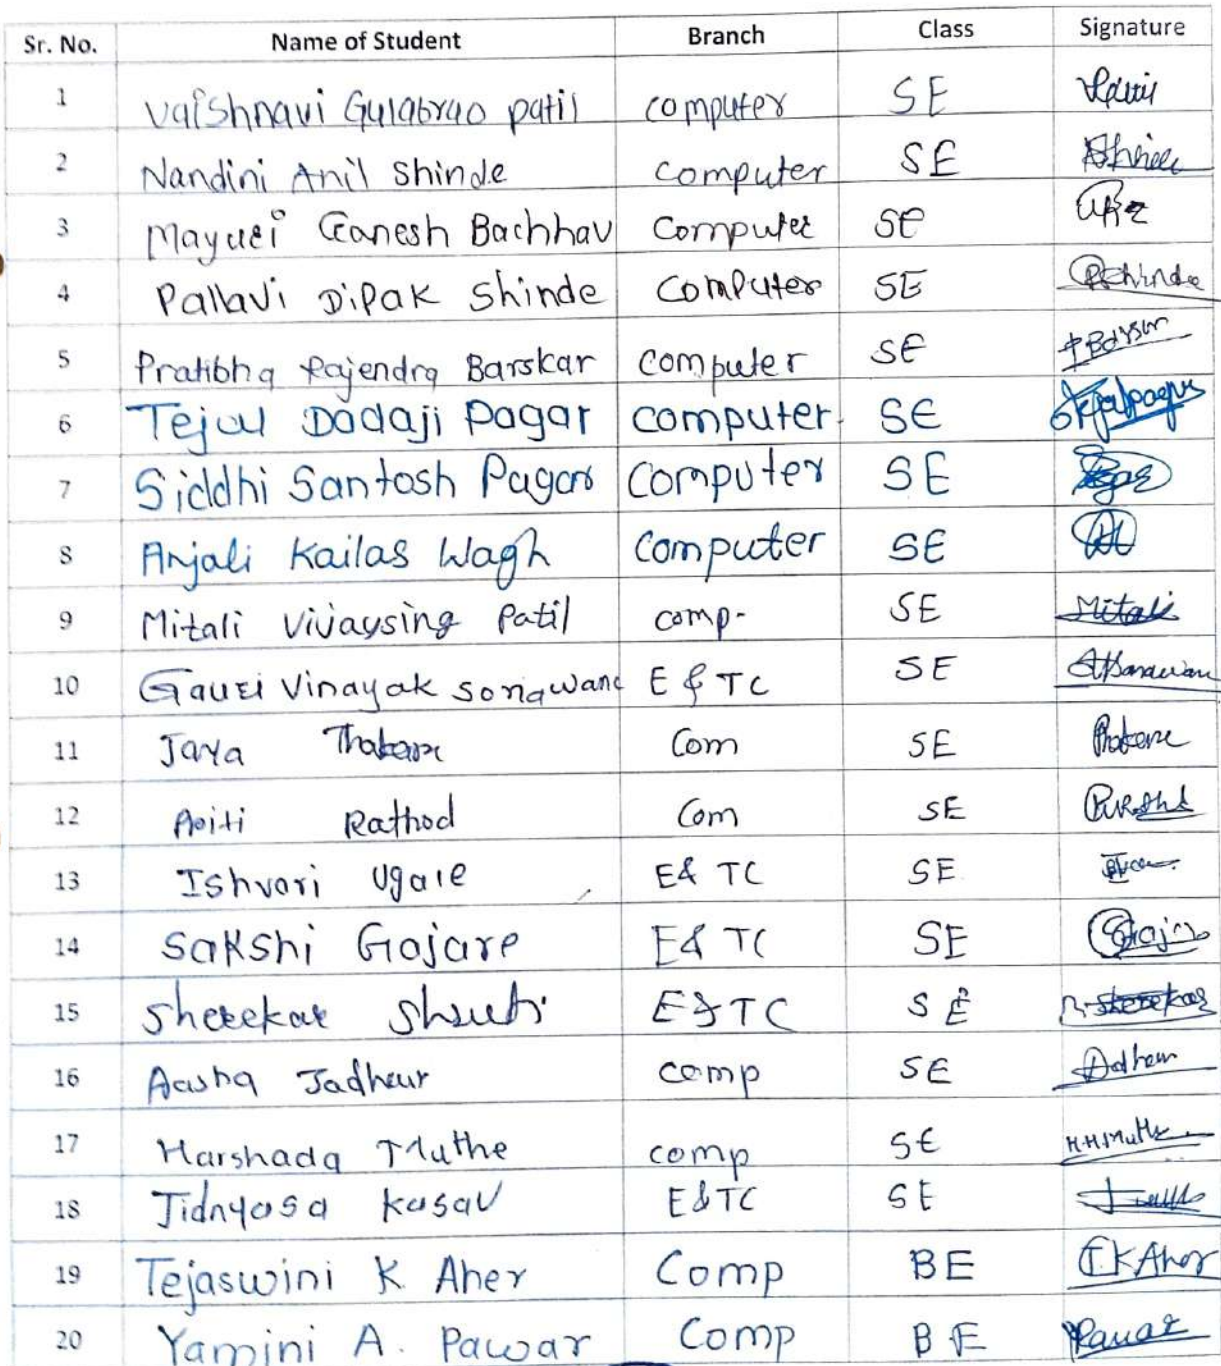 Sr. No. Name of Student Branch Class Signature
1 Vaishnavi Gulabrao patil computer SE
2 Nandini Anil Shinde Computer SE
3 Mayuri Ganesh Bachhav Computer SE
4 Pallavi Dipak Shinde Computer SE PShinde
5 Pratibha Rajendra Barskar Computer SE
6 Tejal Dadaji Pagar Computer SE Tejalpagar
7 Siddhi Santosh Pagar Computer SE
8 Anjali Kailas Wagh Computer SE
9 Mitali Vijaysing Patil comp- SE Mitali
10 Gauri Vinayak sonawane E & TC SE
11 Jaya Thakare Com SE
12 Rathod Com SE
13 Ishvari Ugale E& TC SE
14 Sakshi Gajare E& TC SE
15 Sherekar Shruti E&TC SE Sherekar
16 Aasha Jadhav comp SE
17 Harshada Muthe comp SE H.H.Muthe
18 Jidnyasa Kasav E&TC SE
19 Tejaswini K. Aher Comp BE T.K.Aher
20 Yamini A. Pawar Comp BE Pawar